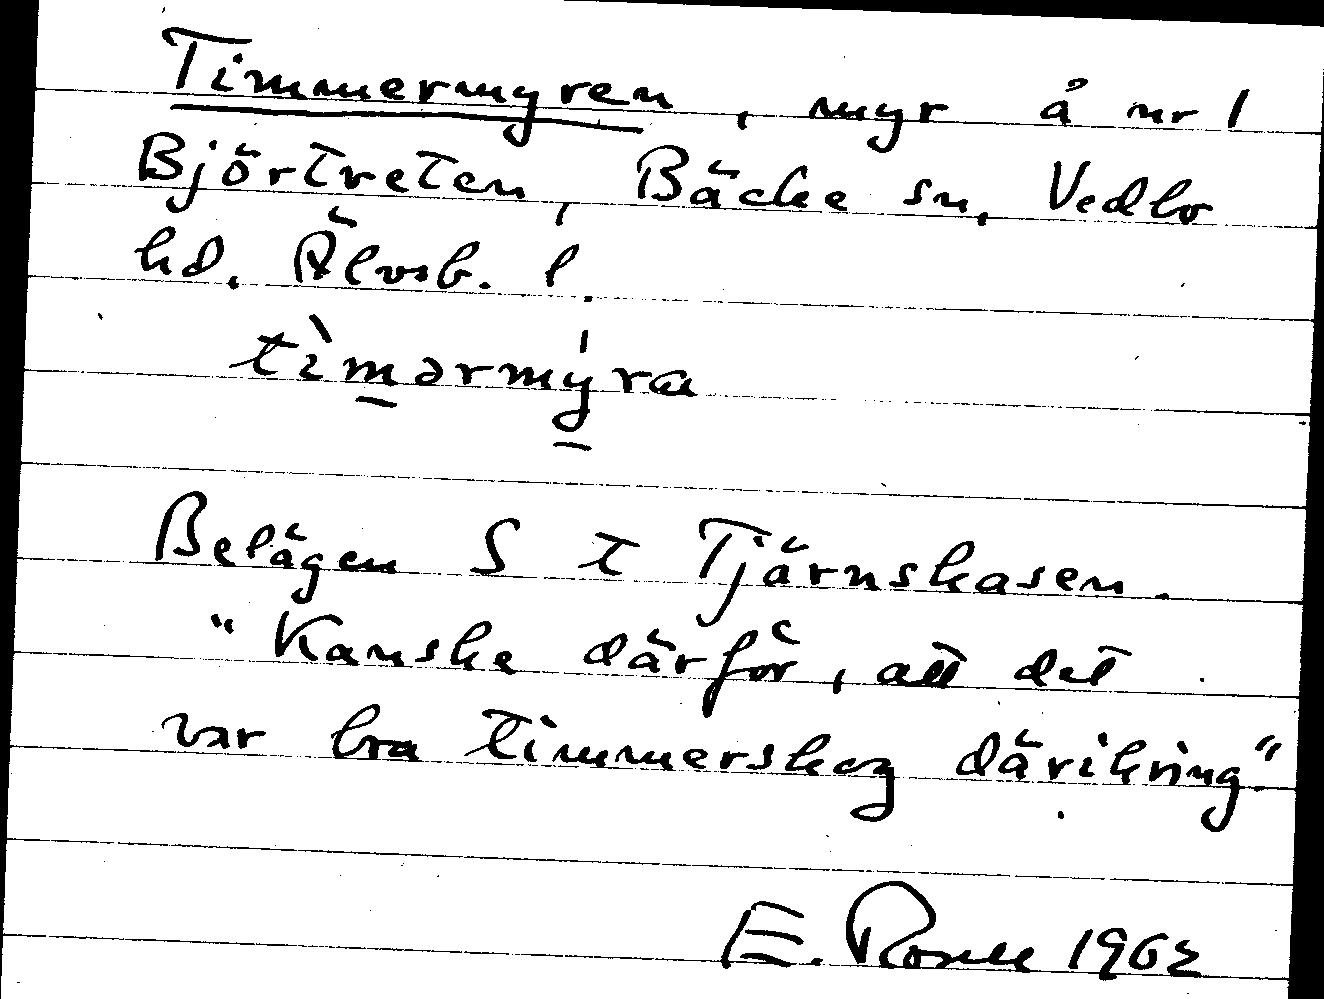 Timmermyren, myr å nr 1
Björtveten, Bäcke sn, Vedbo
hd. Älvsb. l.
tìmərmýra
Belägen S t Tjärnskasen.
"Kanske därför, att det
var bra timmerskog därikring."
E. 1962